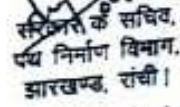 सरकार के सचिव,
पथ निर्माण विभाग,
झारखण्ड, रांची !